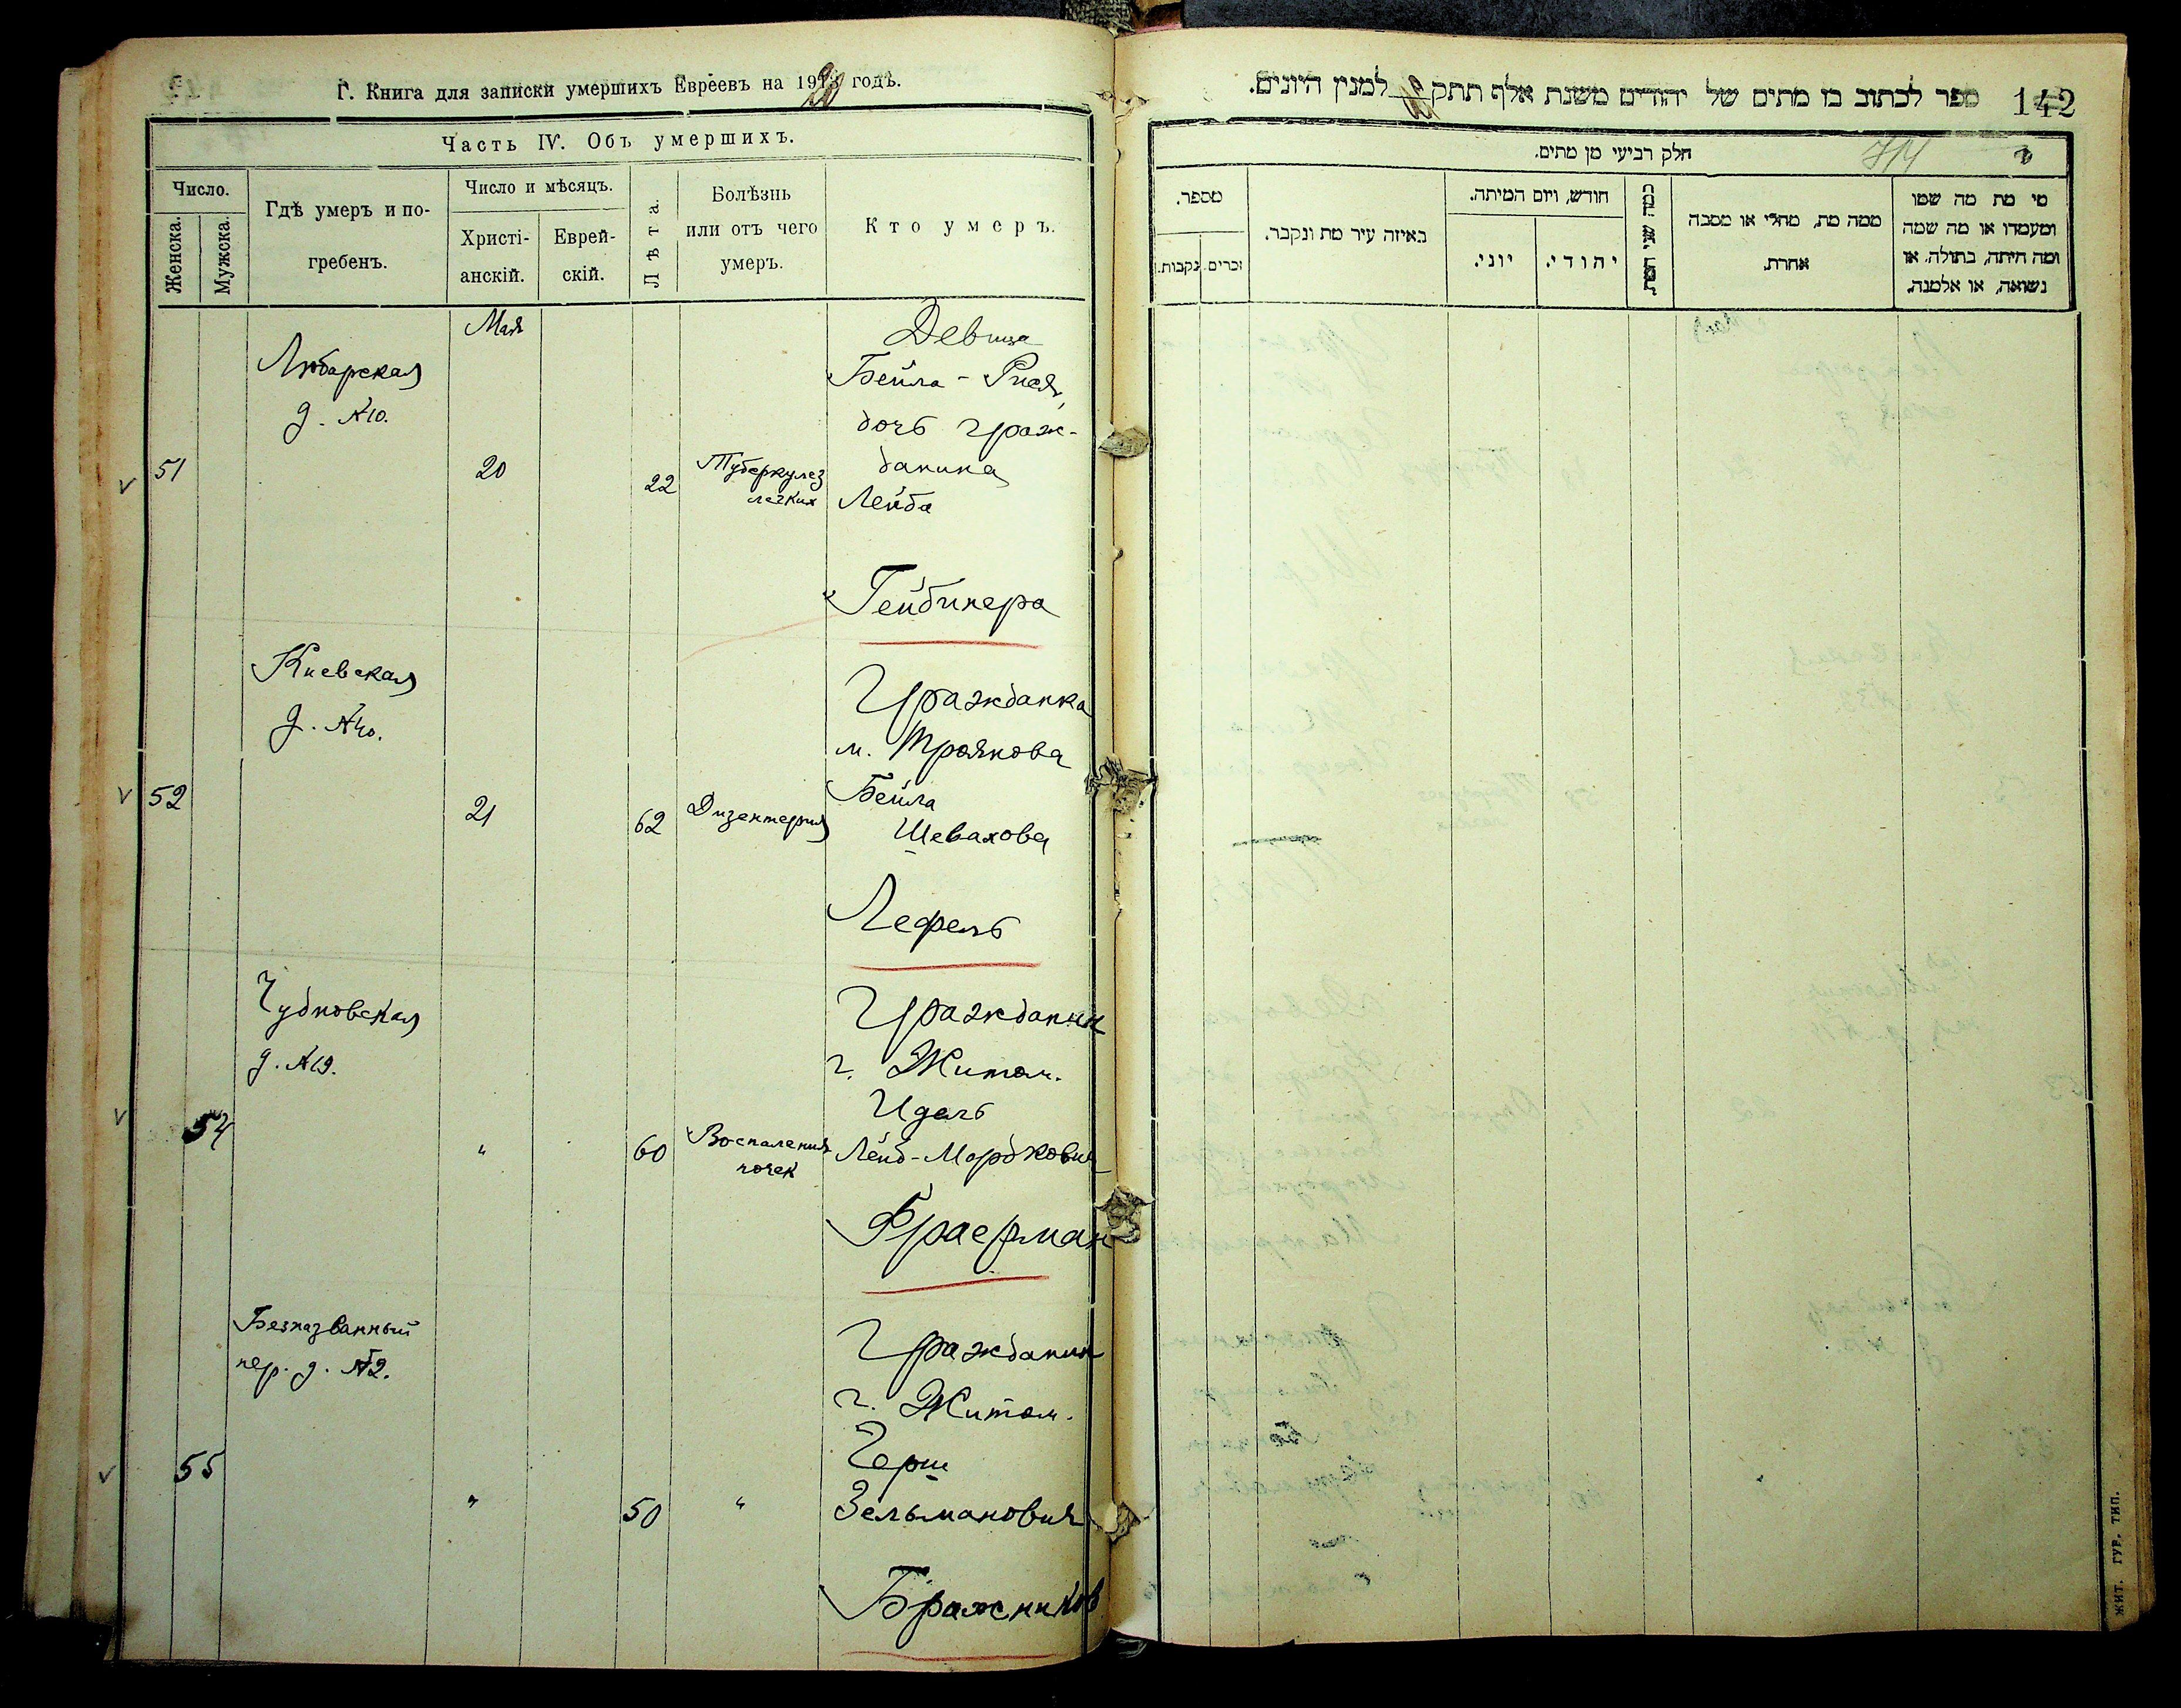 Г. Книга для записки умершихъ Евреевъ на 1920 годъ.
Часть IV. Объ умершихъ.
Число.
Женска.
Мужска.
Гдѣ умеръ и по-
гребенъ.
Число и мѣсяцъ.
Христі-
анскій.
Еврей-
скій.
Лѣта.
Болѣзнь
или отъ чего
умеръ.
Кто умеръ.
Мая
Девица
Любарская
Бейла-Рися,
д. №10.
дочь граж-
51
20
22
Туберкулез
легких
данина
Лейба
Гейбинера
Киевская
д. №40.
Гражданка
м. Троянова
52
21
62
Дизентерия
Бейла
Шевахова
Лефель
Чудновская
д. №19.
Гражданин
г. Житом.
Идель
54
"
60
Воспаления
почек
Лейб-Мордкович
Фраерман
Безназванный
пер. д. №2.
Гражданин
г. Житом.
Герш
55
"
50
"
Зельманович
Бражников
ספר לכתוב בו מתים של יהודים משנת אלף תתק למנין היונים.
142
חלק רביעי מן מתים.
מספר.
זכרים.
נקבות.
באיזה עיר מת ונקבר.
חודש, ויום המיתה.
יוני.
יהודי.
כמה שני המת
ממה מת, מחלי או מסבה
אחרת.
מי מת מה שמו
ומעמדו או מה שמה
ומה היתה, בתולה, או
נשואה, או אלמנה.
ЖИТ. ГУБ. ТИП.